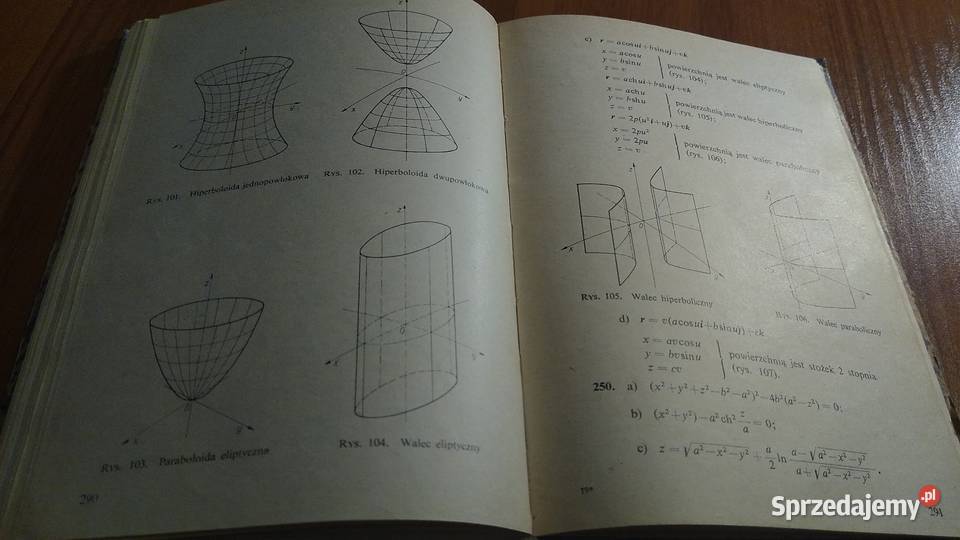 z
x
y
Rys. 101. Hiperboloida jednopowłokowa
z
0
x
y
Rys. 102. Hiperboloida dwupowłokowa
z
0
x
y
Rys. 103. Paraboloida eliptyczna
z
0
x
y
Rys. 104. Walec eliptyczny
290
c) r = acosui+bsinuj+vk
x = acosu
y = bsinu
z = v
powierzchnią jest walec eliptyczny
(rys. 104);
r = achui+bshuj+vk
x = achu
y = bshu
z = v
powierzchnią jest walec hiperboliczny
(rys. 105);
r = 2p(u²i+uj)+vk
x = 2pu²
y = 2pu
z = v
powierzchnią jest walec paraboliczny
(rys. 106);
z
0
x
y
Rys. 105. Walec hiperboliczny
Rys. 106. Walec paraboliczny
d) r = v(acosui+bsinuj)+ck
x = avcosu
y = bvsinu
z = cv
powierzchnią jest stożek 2 stopnia
(rys. 107).
250. a) (x²+y²+z²−b²−a²)²−4b²(a²−z²) = 0;
b) (x²+y²)−a²ch² z/a = 0;
c) z = √a²−x²−y² + a/2 ln a−√a²−x²−y² / a+√a²−x²−y² .
19*
291
Sprzedajemy.pl